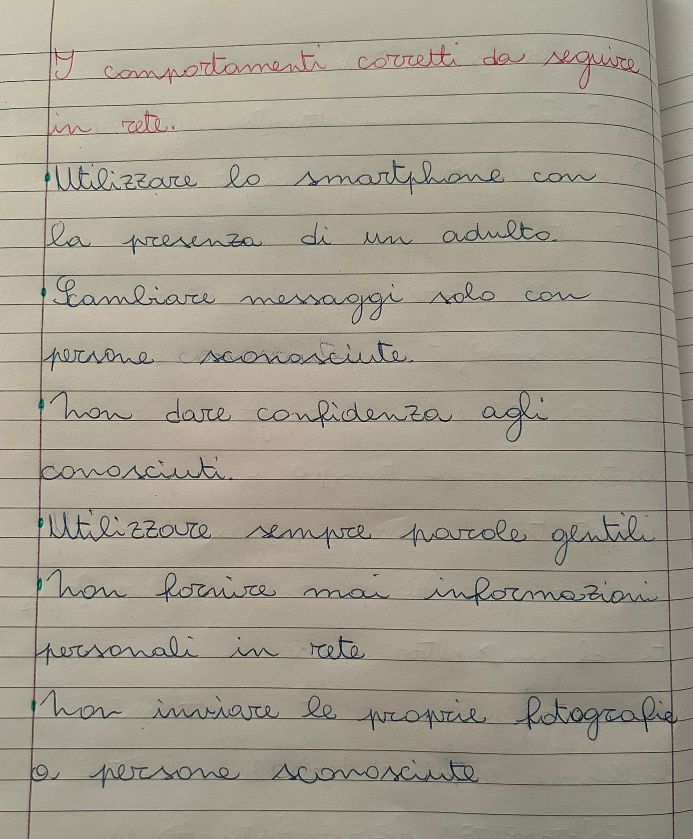 I comportamenti corretti da seguire
in rete.
•Utilizzare lo smartphone con
la presenza di un adulto.
•Scambiare messaggi solo con
persone sconosciute.
•Non dare confidenza agli
conosciuti.
•Utilizzare sempre parole gentili
•Non fornire mai informazioni
personali in rete
•Non inviare le proprie fotografie
a persone sconosciute